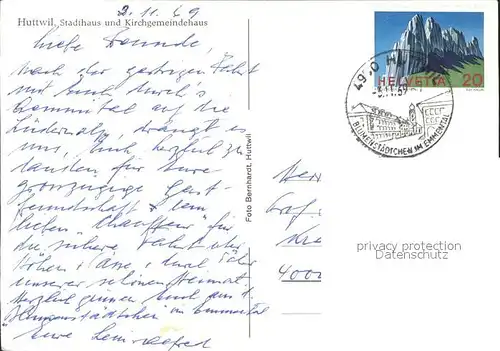 3.11.69
Huttwil, Stadthaus und Kirchgemeindehaus
Liebe Freunde,
nach der gestrigen Fahrt
mit Euch durch's
Emmital auf die
Lüderenalp, drängt es
uns, Euch herzlich zu
danken für Eure
grosszügige Gast-
freundschaft & dem
lieben "Chauffeur" für
die sichere Fahrt über
Höhen & durch Täler
unserer schönen Heimat.
Herzlich grüssen Euch aus d.
"Blumenstädtchen im Emmental"
Eure
Foto Bernhardt, Huttwil
HELVETIA 20
-3.11.69
BLUMENSTÄDTCHEN IM EMMENTAL
privacy protection
Datenschutz
4000